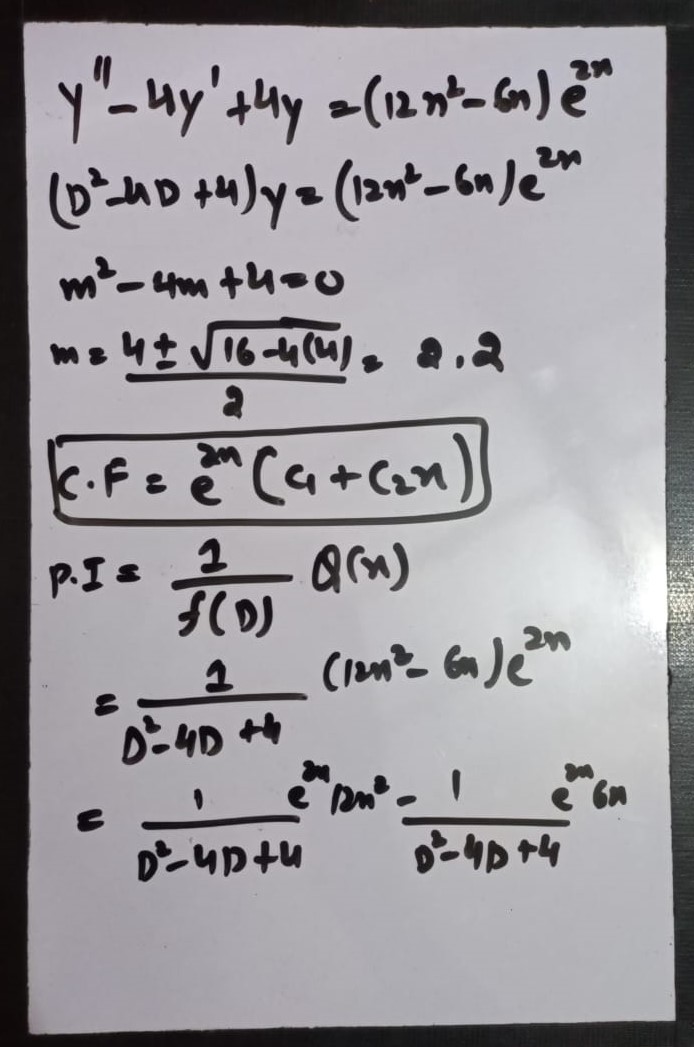 y'' - 4y' + 4y = (12x² - 6x) e^{2x}
(D² - 4D + 4) y = (12x² - 6x) e^{2x}
m² - 4m + 4 = 0
m = \frac{4 ± √(16 - 4(4))}{2} = 2, 2
C.F = e^{2x} (C₁ + C₂x)
P.I = \frac{1}{f(D)} Q(x)
= \frac{1}{D² - 4D + 4} (12x² - 6x) e^{2x}
= \frac{1}{D² - 4D + 4} e^{2x} 12x² - \frac{1}{D² - 4D + 4} e^{2x} 6x